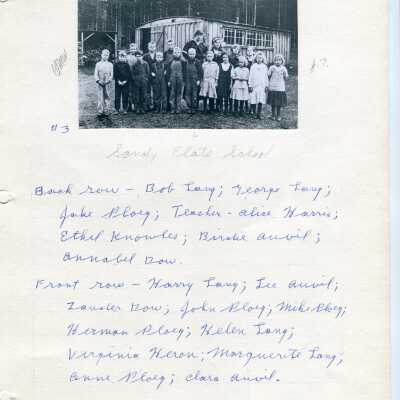 #3
Sandy Flats School
Back row - Bob Lang; George Lang;
Jake Ploeg; Teacher - Alice Harris;
Ethel Knowles; Birdie Anvil;
Annabel Dow.
Front row - Harry Lang; Lee Anvil;
Zander Dow; John Ploeg; Mike Ploeg;
Herman Ploeg; Helen Lang;
Virginia Heron; Marguerite Lang;
Anne Ploeg; Clara Anvil.